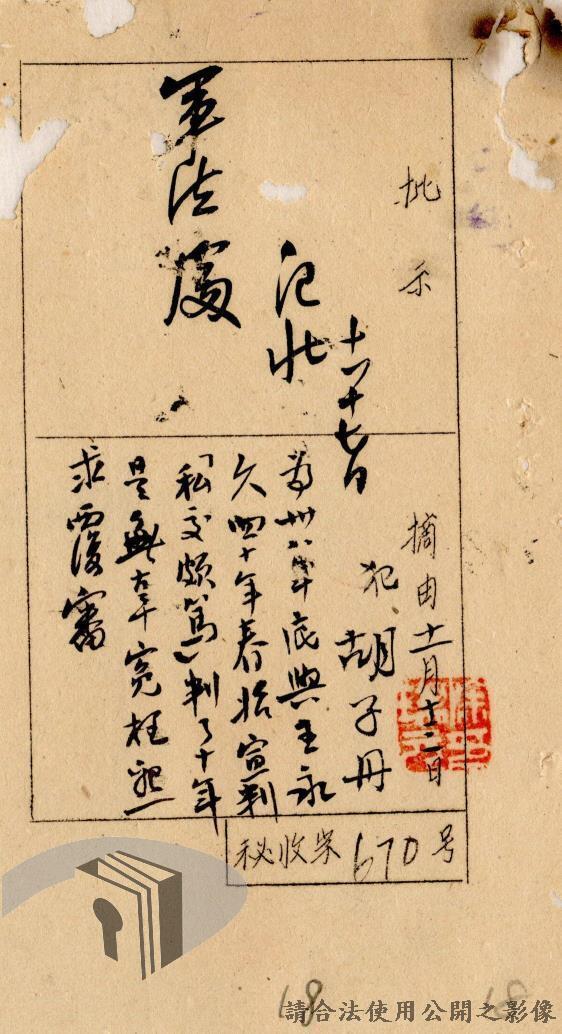 批示
軍法處
十一、十七日
摘由 十一月十二日
犯 胡子丹
為卅八年底與王永
久四十年春始宣判
「私交頗篤」判了十年
是無辜冤枉懇
求覆審
秘收字 670 号
18
18
請合法使用公開之影像